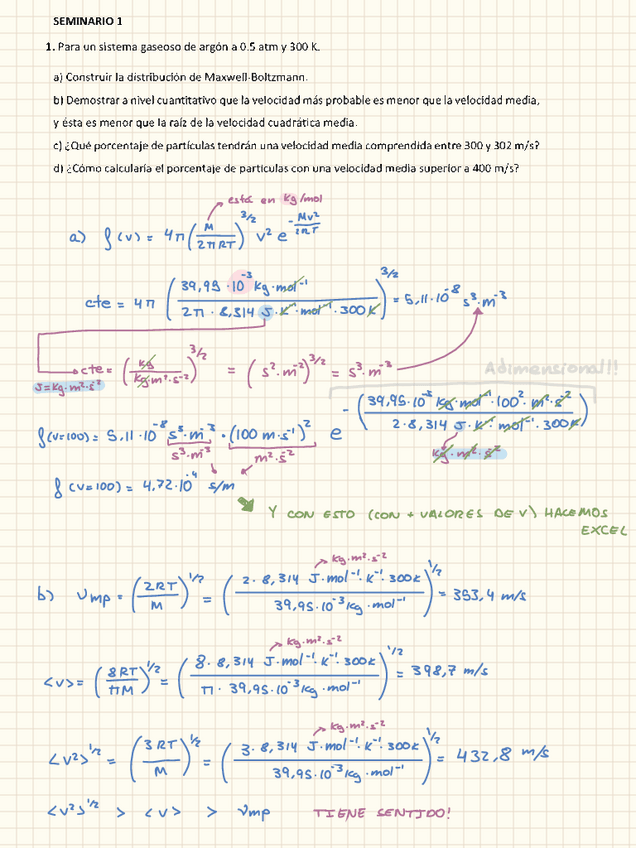 SEMINARIO 1
1. Para un sistema gaseoso de argón a 0.5 atm y 300 K.
a) Construir la distribución de Maxwell-Boltzmann.
b) Demostrar a nivel cuantitativo que la velocidad más probable es menor que la velocidad media,
y ésta es menor que la raíz de la velocidad cuadrática media.
c) ¿Qué porcentaje de partículas tendrán una velocidad media comprendida entre 300 y 302 m/s?
d) ¿Cómo calcularía el porcentaje de partículas con una velocidad media superior a 400 m/s?
está en kg/mol
a) f(v) = 4π (M / 2πRT)^3/2 v² e^-Mv²/2RT
cte = 4π (39,95 · 10⁻³ kg · mol⁻¹ / 2π · 8,314 J · K⁻¹ · mol⁻¹ · 300K)^3/2 = 5,11 · 10⁻⁸ s³ · m⁻³
J = kg · m² · s⁻² cte = (kg / kg · m² · s⁻²)^3/2 = (s² · m⁻²)^3/2 = s³ · m⁻³
Adimensional!!
f(v=100) = 5,11 · 10⁻⁸ s³ · m⁻³ · (100 m · s⁻¹)² e^-(39,95 · 10⁻³ kg · mol⁻¹ · 100² · m² · s⁻² / 2 · 8,314 J · K⁻¹ · mol⁻¹ · 300K)
s³ · m⁻³ m² · s⁻² kg · m² · s⁻²
f(v=100) = 4,72 · 10⁻⁴ s/m
Y CON ESTO (CON + VALORES DE V) HACEMOS
EXCEL
kg · m² · s⁻²
b) vmp = (2RT / M)^1/2 = (2 · 8,314 J · mol⁻¹ · K⁻¹ · 300K / 39,95 · 10⁻³ kg · mol⁻¹)^1/2 = 353,4 m/s
kg · m² · s⁻²
<v> = (8RT / πM)^1/2 = (8 · 8,314 J · mol⁻¹ · K⁻¹ · 300K / π · 39,95 · 10⁻³ kg · mol⁻¹)^1/2 = 398,7 m/s
kg · m² · s⁻²
<v²>^1/2 = (3RT / M)^1/2 = (3 · 8,314 J · mol⁻¹ · K⁻¹ · 300K / 39,95 · 10⁻³ kg · mol⁻¹)^1/2 = 432,8 m/s
<v²>^1/2 > <v> > vmp TIENE SENTIDO!